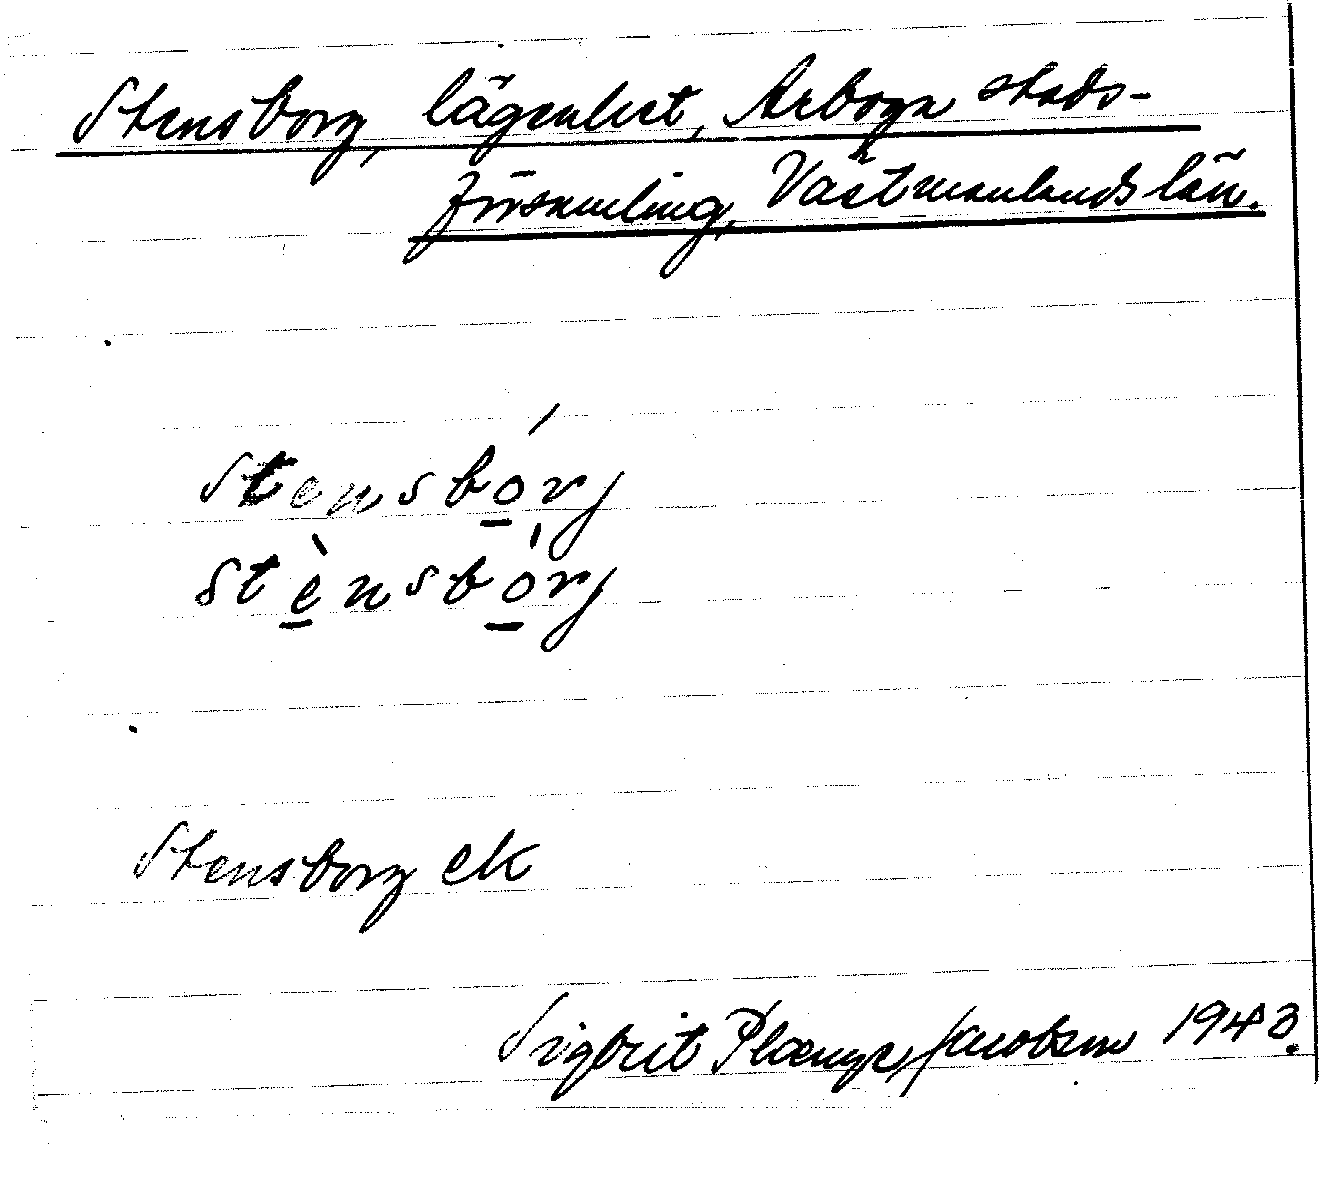 Stensborg, lägenhet, Arboga stads-
församling, Västmanlands län.
stensbó̲rj
stè̲nsbò̲rj
Stensborg ek
Sigbrit Plænge Jacobson 1943.